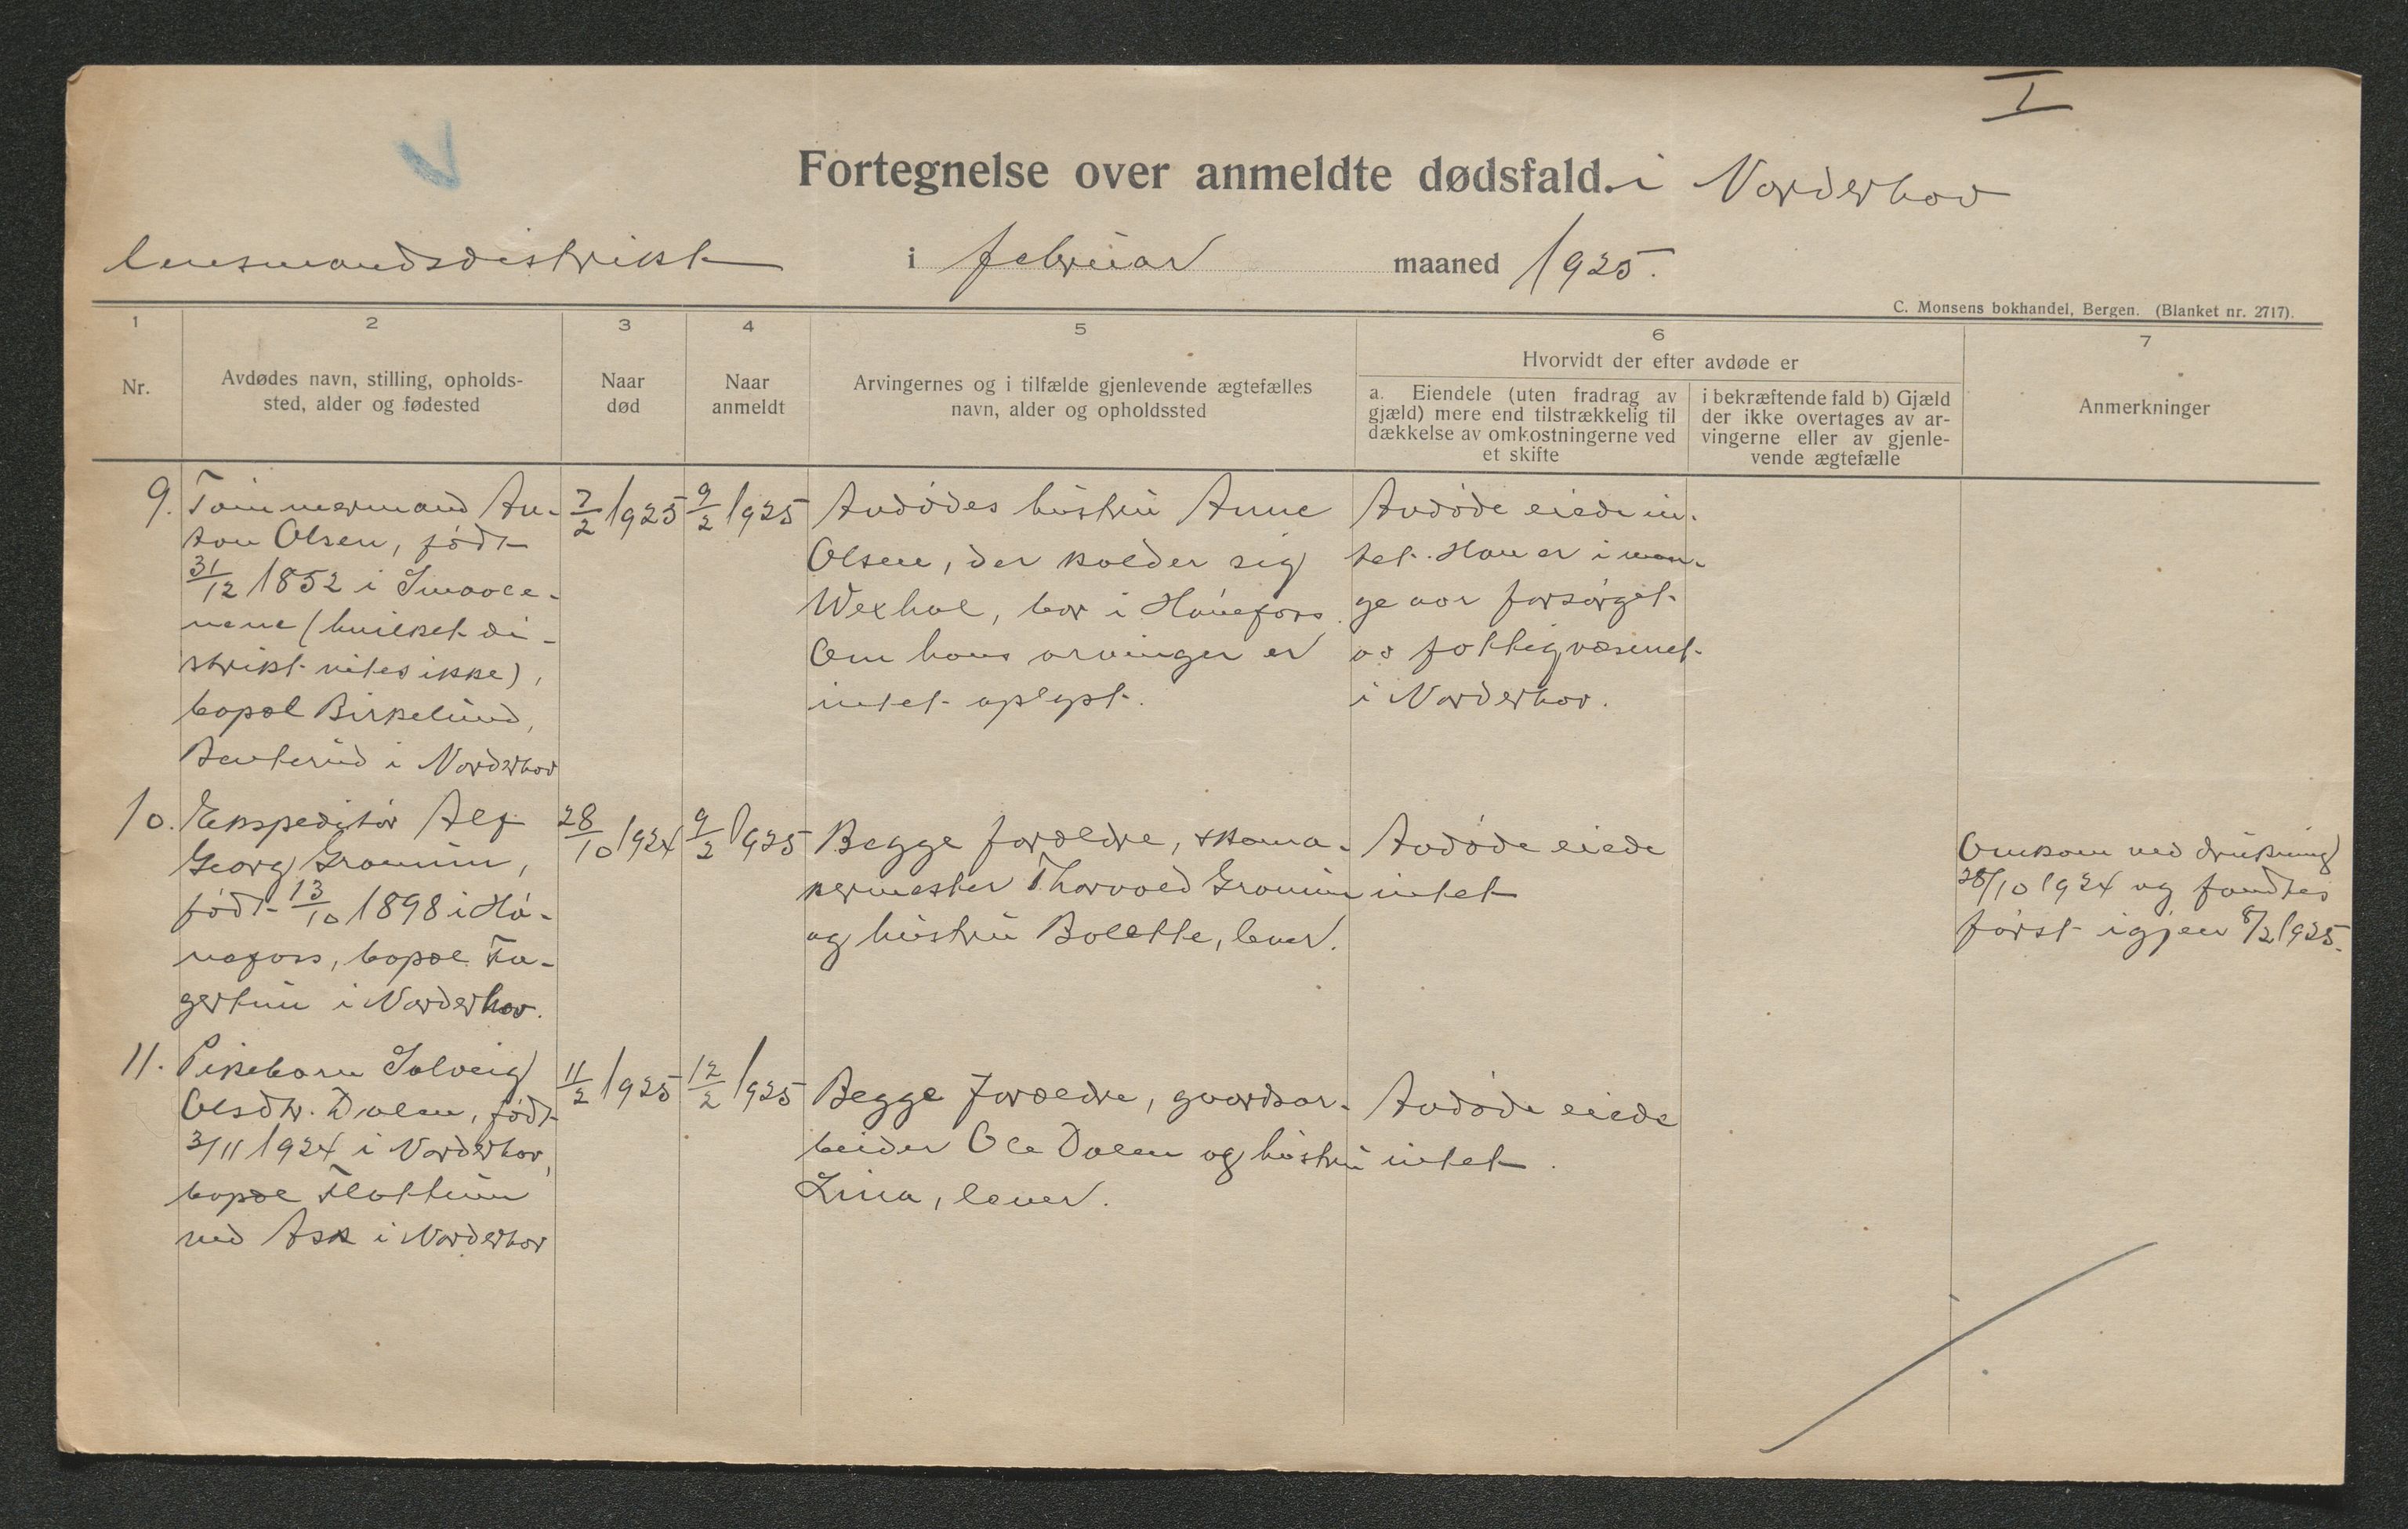 I
Fortegnelse over anmeldte dødsfald. i Norderhov
lensmandsdistrikt i februar maaned 1925.
C. Monsens bokhandel, Bergen. (Blanket nr. 2717).
1
Nr.
2
Avdødes navn, stilling, opholds-
sted, alder og fødested
3
Naar
død
4
Naar
anmeldt
5
Arvingernes og i tilfælde gjenlevende ægtefælles
navn, alder og opholdssted
6
Hvorvidt der efter avdøde er
a. Eiendele (uten fradrag av
gjæld) mere end tilstrækkelig til
dækkelse av omkostningerne ved
et skifte
i bekræftende fald b) Gjæld
der ikke overtages av ar-
vingerne eller av gjenle-
vende ægtefælle
7
Anmerkninger
9.
Tømmermand An-
ton Olsen, født
31/12 1852 i Smaale-
nene (hvilket di-
strikt vites ikke),
bopæl Birkelund,
Benterud i Norderhov
7/2 1925
9/2 1925
Avdødes hustru Anne
Olsen, der kalder sig
Wexhal, bor i Hønefoss.
Om hans arvinger er
intet oplyst.
Avdøde eiede in-
tet. Han er i man-
ge aar forsørget
av fattigvæsenet
i Norderhov.
10.
Ekspeditør Alf
Georg Gromim,
født 13/10 1898 i Hø-
nefoss, bopæl Fa-
gertun i Norderhov.
28/10 1924
9/2 1925
Begge forældre, skoma-
kermester Thorvald Gromim
og hustru Bolette, lever.
Avdøde eiede
intet
Omkom ved drukning
28/10 1924 og fandtes
først igjen 8/2 1925.
11.
Pikebarn Solveig
Olsdtr. Dalen, født
3/11 1924 i Norderhov,
bopæl Flattum
ved Ask i Norderhov
11/2 1925
12/2 1925
Begge forældre, gaardsar-
beider Ole Dalen og hustru
Lina, lever.
Avdøde eiede
intet.